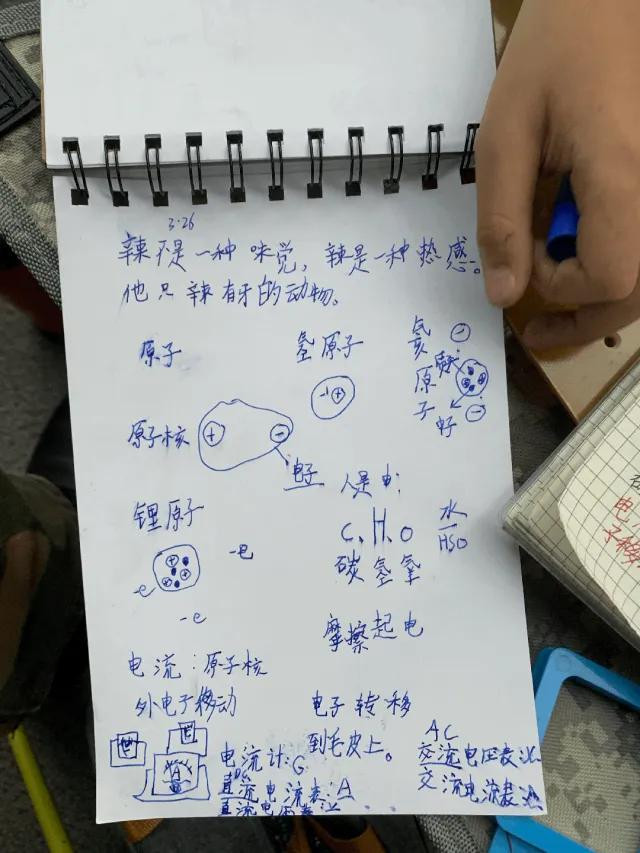 3.26
辣不是一种味觉，辣是一种热感。
他只辣有牙的动物。
原子
氢原子
氦原子
原子核
电子
锂原子
-e
-e
-e
人是由:
C、H、O
碳 氢 氧
水
HSO
摩擦起电
电流:原子核
外电子移动
电子转移
到毛皮上。
电流计:G
直流电流表:A
直流电压表:
AC
交流电压表
交流电流表
电
子移